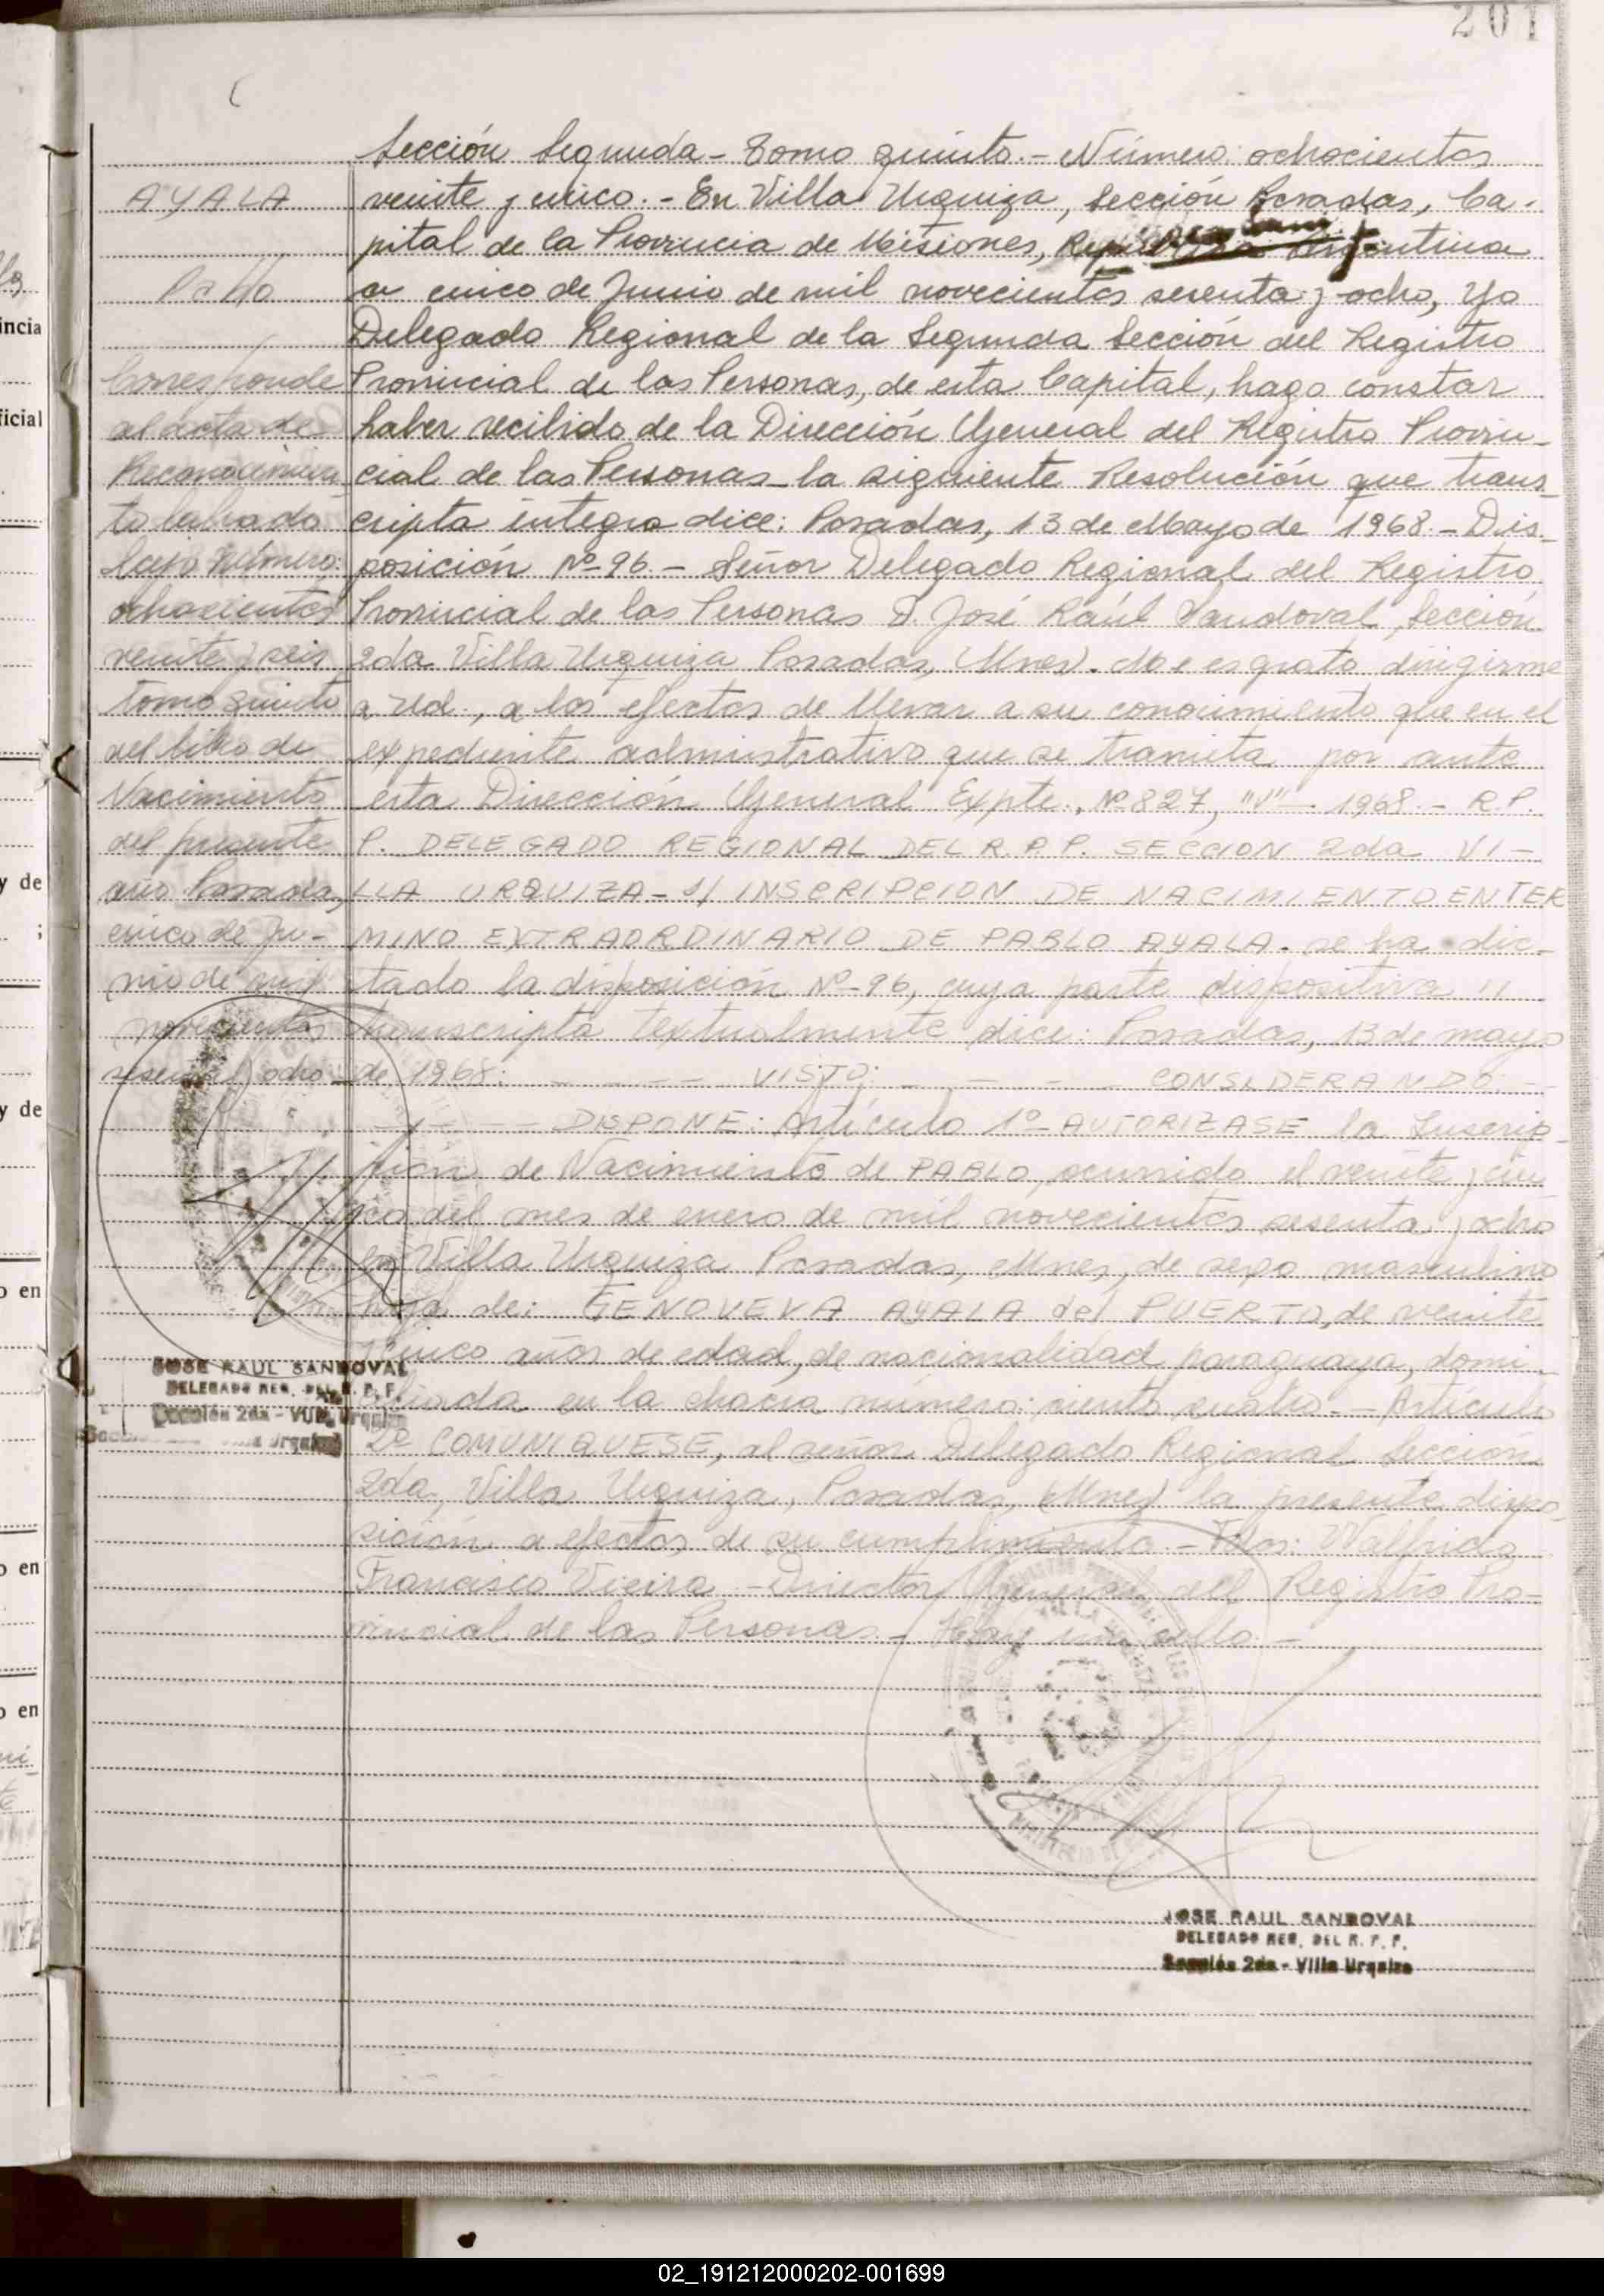 201
Sección Segunda - Tomo quinto. - Número: ochocientos
AYALA
veinte y cinco. - En Villa Urquiza, Sección Posadas, Ca-
pital de la Provincia de Misiones, República Argentina
Pablo
a cinco de Junio de mil novecientos sesenta y ocho, Yo
Delegado Regional de la Segunda Sección del Registro
Provincial de las Personas, de esta Capital, hago constar
haber recibido de la Dirección General del Registro Provin-
cial de las Personas la siguiente Resolución que trans-
cripta integra dice: Posadas, 13 de Mayo de 1968. - Dis-
posición Nº 96. - Señor Delegado Regional del Registro
Provincial de las Personas D. José Raúl Sandoval, Sección
2da Villa Urquiza Posadas, (Mnes). Me es grato dirigirme
a Ud., a los efectos de llevar a su conocimiento que en el
expediente admistrativo que se tramita por ante
esta Dirección General Expte., Nº 827, "V" - 1968. - R.P.
P. DELEGADO REGIONAL DEL R.P.P. SECCION 2da VI-
LLA URQUIZA - S/ INSCRIPCION DE NACIMIENTO EN TER
MINO EXTRAORDINARIO DE PABLO AYALA. se ha dic-
tado la disposición Nº 96, cuya parte dispositiva //
transcripta textualmente dice: Posadas, 13 de mayo
de 1968: - - - - VISTO: - - - - CONSIDERANDO: - -
- - - - DISPONE: Artículo 1º AUTORIZASE la Inscrip-
ción de Nacimiento de PABLO, ocurrido el veinte y cin
co del mes de enero de mil novecientos sesenta y ocho
en Villa Urquiza Posadas, Mnes, de sexo masculino
hijo de: GENOVEVA AYALA del PUERTO, de veinte
y cinco años de edad, de nacionalidad paraguaya, domi-
ciliada en la chacra número: ciento cuatro. - Artículo
2º COMUNIQUESE, al señor Delegado Regional Sección
2da, Villa Urquiza, Posadas, (Mnes) la presente dispo-
sición a efectos de su cumplimiento. - Fdos: Walfrido
Francisco Vieira - Director General del Registro Pro-
vincial de las Personas. - Hay un sello. -
Corresponde
al acta de
Reconocimien
to labrado
bajo número:
ochocientos
veinte y seis
tomo quinto
del libro de
Nacimiento
del presente
año Posadas,
cinco de Ju-
nio de mil
novecientos
sesenta y ocho
JOSE RAUL SANDOVAL
DELEGADO REG. DEL R. P. P.
Sección 2da - Villa Urquiza
JOSE RAUL SANDOVAL
DELEGADO REG. DEL R. P. P.
Sección 2da - Villa Urquiza
incia
ficial
y de
;
y de
o en
o en
o en
02_191212000202-001699